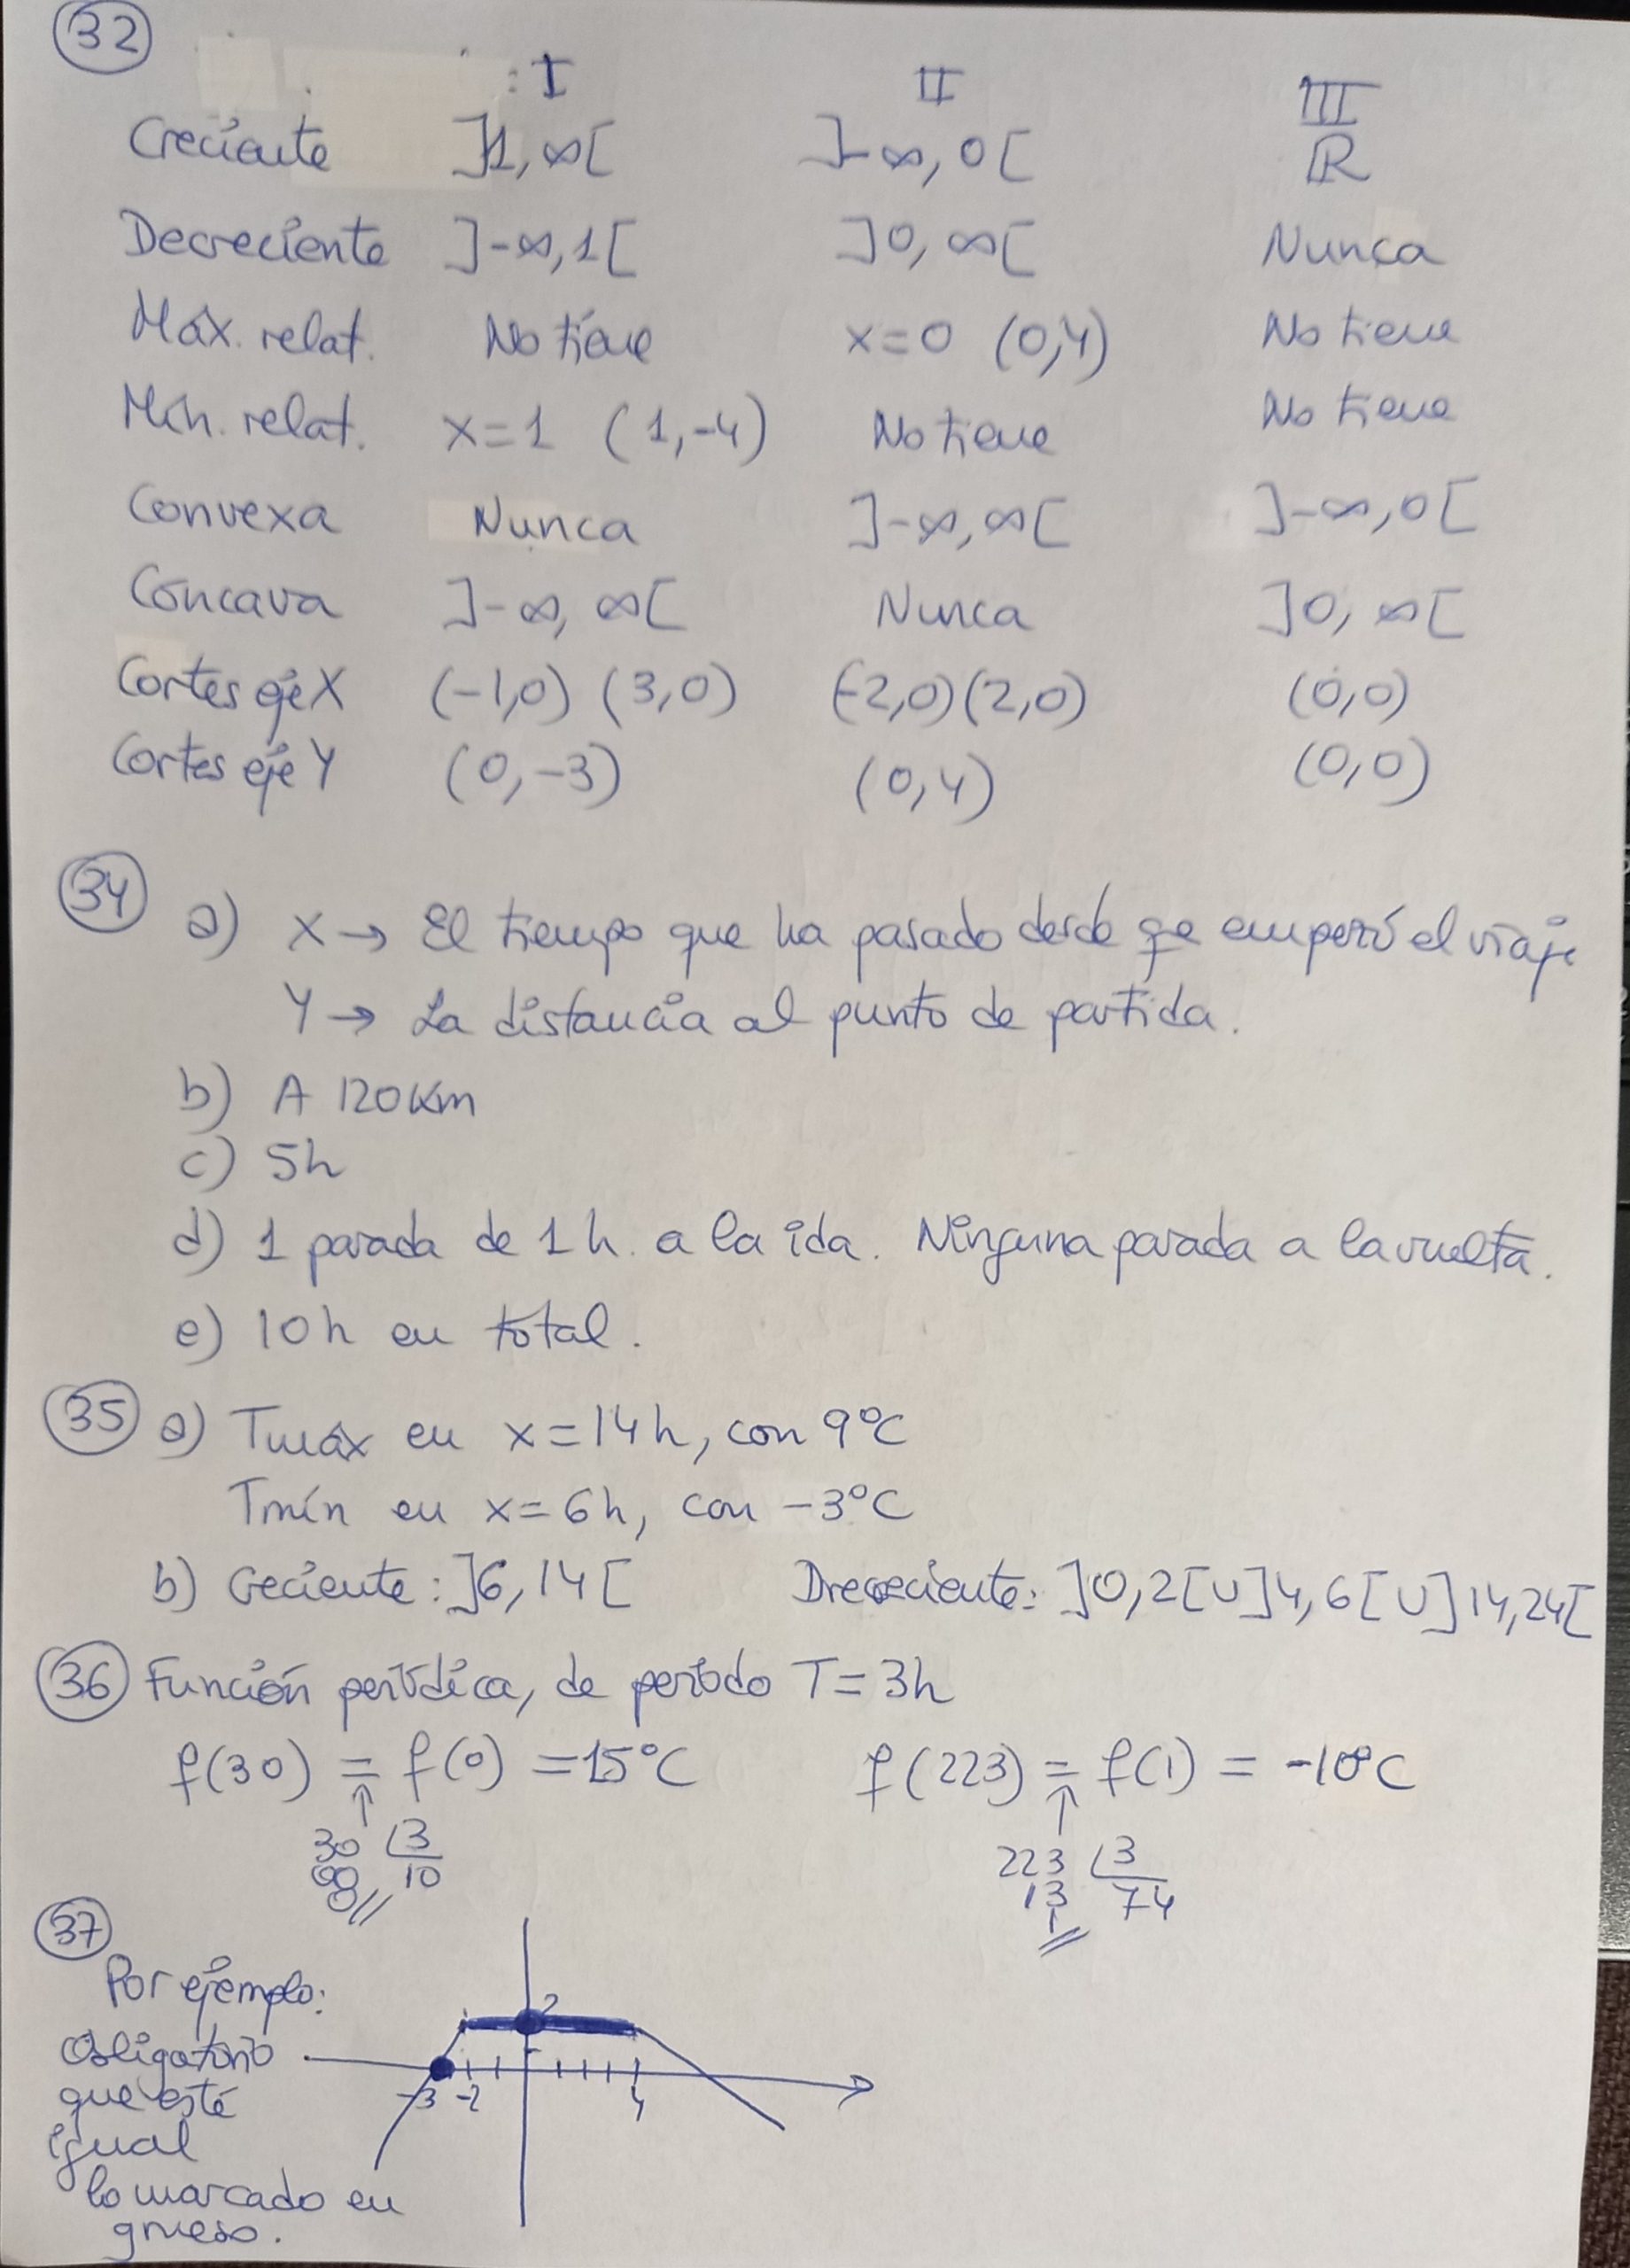 32
: I II III
Creciente ]1, ∞[ ]-∞, 0[ ℝ
Decreciente ]-∞, 1[ ]0, ∞[ Nunca
Máx. relat. No tiene x=0 (0,4) No tiene
Mín. relat. x=1 (1,-4) No tiene No tiene
Convexa Nunca ]-∞, ∞[ ]-∞, 0[
Cóncava ]-∞, ∞[ Nunca ]0, ∞[
Cortes eje X (-1,0) (3,0) (-2,0) (2,0) (0,0)
Cortes eje Y (0,-3) (0,4) (0,0)
34 a) X → El tiempo que ha pasado desde qe empezó el viaje
Y → La distancia al punto de partida.
b) A 120 Km
c) 5h
d) 1 parada de 1 h. a la ida. Ninguna parada a la vuelta.
e) 10h en total.
35 a) Tmáx en x=14h, con 9ºC
Tmín en x=6h, con -3ºC
b) Creciente: ]6, 14[ Drecreciente: ]0, 2[ U ]4, 6[ U ]14, 24[
36 Función periódica, de período T=3h
f(30) = f(0) = 15ºC f(223) = f(1) = -10ºC
↑ ↑
30 3 223 3
00 10 13 74
0 1
37
Por ejemplo: 2
Obligatorio
que esté -3 -2 4
igual
lo marcado en
grueso.